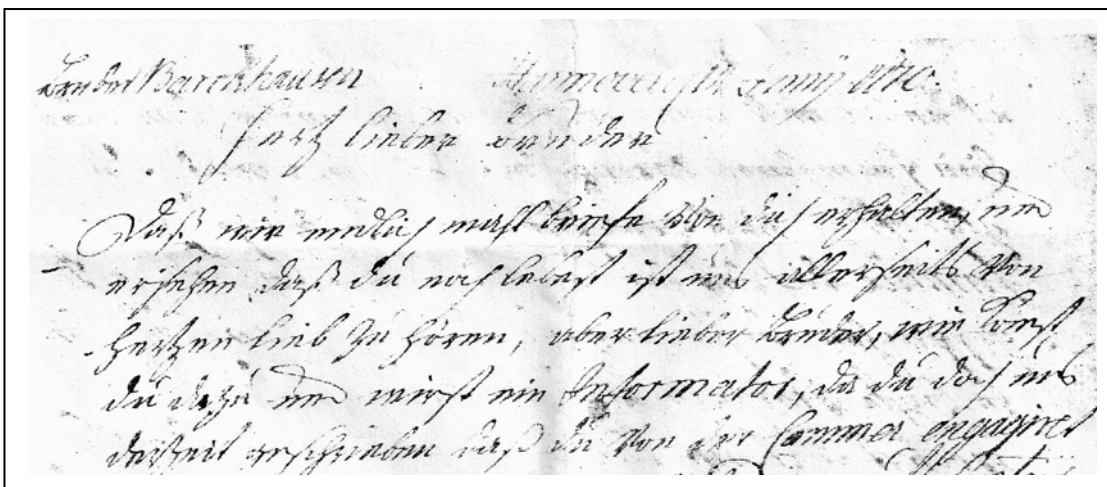 Bruder Barckhausen
Hertz lieber bruder
Daß wir endlich mahl brieffe von dir erhalten, und
ersehen daß du noch lebest ist uns allerseits von
hertzen lieb zu hören, aber lieber bruder, wie kömst
du dazu und wirst ein Informator, da du doch uns
derzeit geschrieben daß du von der Cammer engagiret